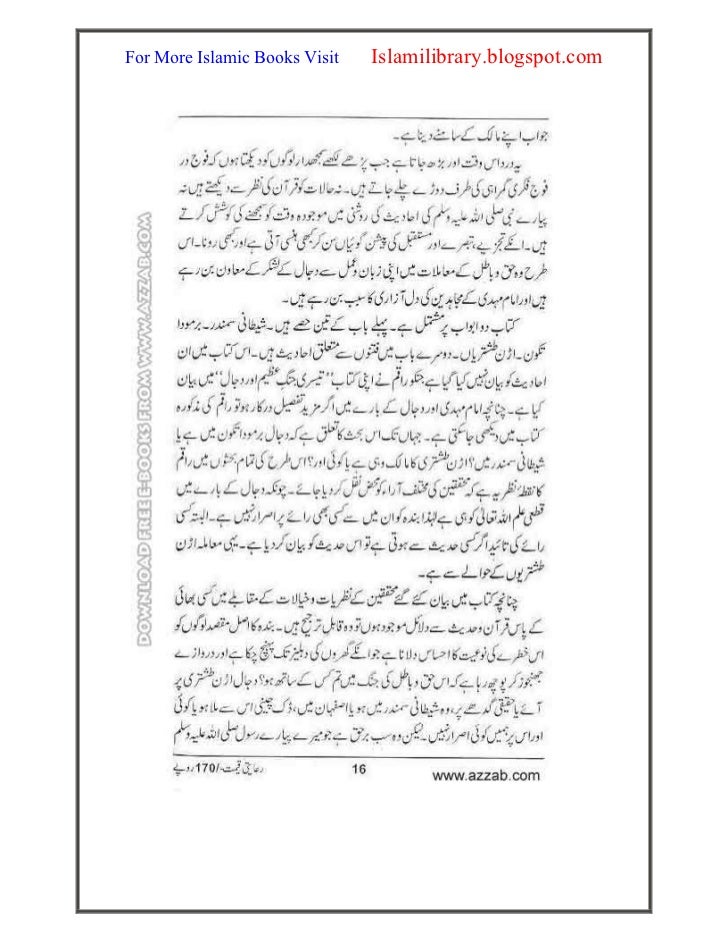 For More Islamic Books Visit Islamilibrary.blogspot.com
جواب اپنے مالک کے سامنے دینا ہے۔
یہ درد اس وقت اور بڑھ جاتا ہے جب پڑھے لکھے سمجھدار لوگوں کو دیکھتا ہوں کہ فوج در
فوج فکری گمراہی کی طرف دوڑے چلے جاتے ہیں۔ نہ حالات کو قرآن کی نظر سے دیکھتے ہیں نہ
پیارے نبی صلی اللہ علیہ وسلم کی احادیث کی روشنی میں موجودہ وقت کو سمجھنے کی کوشش کرتے
ہیں۔ انکے تجزیے، تبصرے اور مستقبل کی پیشن گوئیاں سن کر کبھی ہنسی آتی ہے اور کبھی رونا۔ اس
طرح وہ حق و باطل کے معاملات میں اپنی زبان و عمل سے دجال کے لشکر کے معاون بن رہے
ہیں اور امام مہدی کے مجاہدین کی دل آزاری کا سبب بن رہے ہیں۔
کتاب دو ابواب پر مشتمل ہے۔ پہلے باب کے تین حصے ہیں۔ شیطانی سمندر۔ برمودا
تکون۔ اڑن طشتریاں۔ دوسرے باب میں فتنوں سے متعلق احادیث ہیں۔ اس کتاب میں ان
احادیث کو بیان نہیں کیا گیا ہے جنکو راقم نے اپنی کتاب "تیسری جنگ عظیم اور دجال" میں بیان
کیا ہے۔ چنانچہ امام مہدی اور دجال کے بارے میں اگر مزید تفصیل درکار ہو تو راقم کی مذکورہ
کتاب میں دیکھی جاسکتی ہے۔ جہاں تک اس بحث کا تعلق ہے کہ دجال برمودا تکون میں ہے یا
شیطانی سمندر میں؟ اڑن طشتری کا مالک وہی ہے یا کوئی اور؟ اس طرح کی تمام بحثوں میں راقم
کا نقطۂ نظر یہ ہے کہ محققین کی مختلف آراء کو محض نقل کر دیا جائے۔ چونکہ دجال کے بارے میں
قطعی علم اللہ تعالیٰ کو ہی ہے لہٰذا بندہ کو ان میں سے کسی بھی رائے پر اصرار نہیں ہے۔ البتہ کسی
رائے کی تائید اگر کسی حدیث سے ہوتی ہے تو اس حدیث کو بیان کر دیا ہے۔ یہی معاملہ اڑن
طشتریوں کے حوالے سے ہے۔
چنانچہ کتاب میں بیان کئے گئے محققین کے نظریات و خیالات کے مقابلے میں کسی بھائی
کے پاس قرآن و حدیث سے دلائل موجود ہوں تو وہ قابل ترجیح ہیں۔ بندہ کا اصل مقصد لوگوں کو
اس خطرے کی نوعیت کا احساس دلانا ہے جو انکے گھروں کی دہلیز تک پہنچ چکا ہے اور دروازے
جھنجوڑ کر پوچھ رہا ہے کہ اس حق و باطل کی جنگ میں تم کس کے ساتھ ہو؟ دجال اڑن طشتری پر
آئے یا حقیقی گدھے پر، وہ شیطانی سمندر میں ہو یا اصفہان میں، ڈک چینی اس سے ملا ہو یا کوئی
اور اس پر ہمیں کوئی اصرار نہیں۔ لیکن وہ سب برحق ہے جو میرے پیارے رسول صلی اللہ علیہ وسلم
رعایتی قیمت -/170 روپے 16 www.azzab.com
DOWNLOAD FREE E-BOOKS FROM WWW.AZZAB.COM